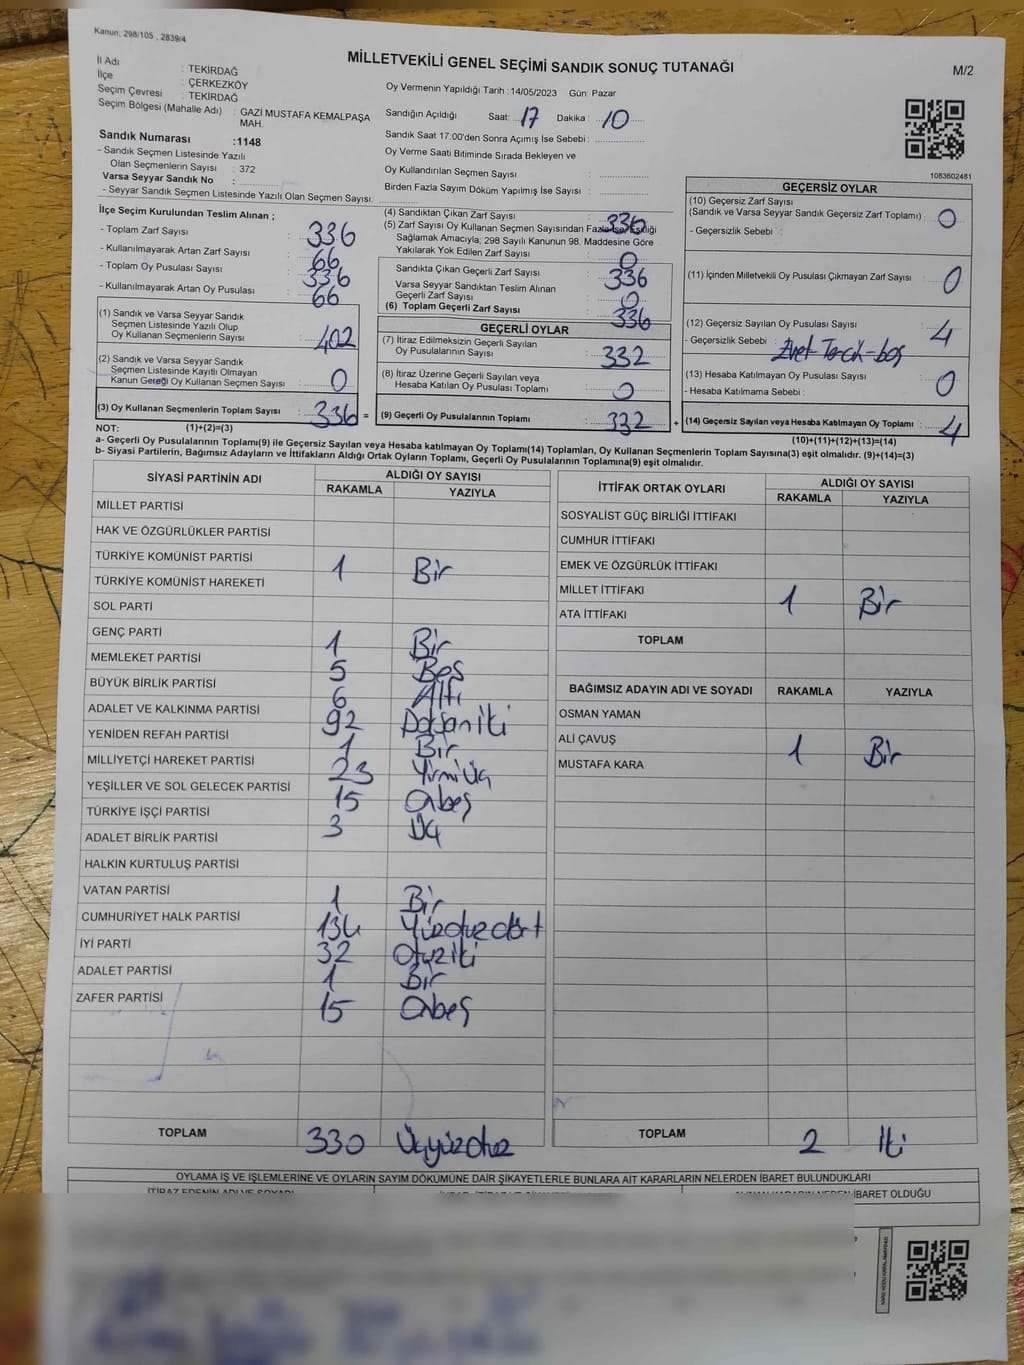 Kanun; 298/105 , 2839/4
MİLLETVEKİLİ GENEL SEÇİMİ SANDIK SONUÇ TUTANAĞI
M/2
İl Adı : TEKİRDAĞ
İlçe : ÇERKEZKÖY
Seçim Çevresi : TEKİRDAĞ
Seçim Bölgesi (Mahalle Adı) : GAZİ MUSTAFA KEMALPAŞA MAH.
Sandık Numarası :1148
- Sandık Seçmen Listesinde Yazılı
Olan Seçmenlerin Sayısı : 372
Varsa Seyyar Sandık No :
- Seyyar Sandık Seçmen Listesinde Yazılı Olan Seçmen Sayısı:
Oy Vermenin Yapıldığı Tarih :14/05/2023 Gün: Pazar
Sandığın Açıldığı Saat: 17 Dakika : 10
Sandık Saat 17:00'den Sonra Açımış İse Sebebi :
Oy Verme Saati Bitiminde Sırada Bekleyen ve
Oy Kullandırılan Seçmen Sayısı :
Birden Fazla Sayım Döküm Yapılmış İse Sayısı :
1083602481
İlçe Seçim Kurulundan Teslim Alınan ;
- Toplam Zarf Sayısı : 336
- Kullanılmayarak Artan Zarf Sayısı : 66
- Toplam Oy Pusulası Sayısı : 336
- Kullanılmayarak Artan Oy Pusulası : 66
(1) Sandık ve Varsa Seyyar Sandık
Seçmen Listesinde Yazılı Olup
Oy Kullanan Seçmenlerin Sayısı : 402
(2) Sandık ve Varsa Seyyar Sandık
Seçmen Listesinde Kayıtlı Olmayan
Kanun Gereği Oy Kullanan Seçmen Sayısı : 0
(3) Oy Kullanan Seçmenlerin Toplam Sayısı : 336 =
(4) Sandıktan Çıkan Zarf Sayısı : 336
(5) Zarf Sayısı Oy Kullanan Seçmen Sayısından Fazla İse, Eşitliği
Sağlamak Amacıyla; 298 Sayılı Kanunun 98. Maddesine Göre
Yakılarak Yok Edilen Zarf Sayısı : 0
Sandıkta Çıkan Geçerli Zarf Sayısı : 336
Varsa Seyyar Sandıktan Teslim Alınan
Geçerli Zarf Sayısı : 0
(6) Toplam Geçerli Zarf Sayısı : 336
GEÇERLİ OYLAR
(7) İtiraz Edilmeksizin Geçerli Sayılan
Oy Pusulalarının Sayısı : 332
(8) İtiraz Üzerine Geçerli Sayılan veya
Hesaba Katılan Oy Pusulası Toplamı : 0
(9) Geçerli Oy Pusulalarının Toplamı : 332 +
GEÇERSİZ OYLAR
(10) Geçersiz Zarf Sayısı
(Sandık ve Varsa Seyyar Sandık Geçersiz Zarf Toplamı) : 0
- Geçersizlik Sebebi :
(11) İçinden Milletvekili Oy Pusulası Çıkmayan Zarf Sayısı : 0
(12) Geçersiz Sayılan Oy Pusulası Sayısı : 4
- Geçersizlik Sebebi : Evet-Tercih-boş
(13) Hesaba Katılmayan Oy Pusulası Sayısı : 0
- Hesaba Katılmama Sebebi :
(14) Geçersiz Sayılan veya Hesaba Katılmayan Oy Toplamı : 4
NOT: (1)+(2)=(3)
(10)+(11)+(12)+(13)=(14)
a- Geçerli Oy Pusulalarının Toplamı(9) ile Geçersiz Sayılan veya Hesaba katılmayan Oy Toplamı(14) Toplamları, Oy Kullanan Seçmenlerin Toplam Sayısına(3) eşit olmalıdır. (9)+(14)=(3)
b- Siyasi Partilerin, Bağımsız Adayların ve İttifakların Aldığı Ortak Oyların Toplamı, Geçerli Oy Pusulalarının Toplamına(9) eşit olmalıdır.
SİYASİ PARTİNİN ADI ALDIĞI OY SAYISI
RAKAMLA YAZIYLA
MİLLET PARTİSİ
HAK VE ÖZGÜRLÜKLER PARTİSİ
TÜRKİYE KOMÜNİST PARTİSİ 1 Bir
TÜRKİYE KOMÜNİST HAREKETİ
SOL PARTİ
GENÇ PARTİ 1 Bir
MEMLEKET PARTİSİ 5 Beş
BÜYÜK BİRLİK PARTİSİ 6 Altı
ADALET VE KALKINMA PARTİSİ 92 Doksaniki
YENİDEN REFAH PARTİSİ 1 Bir
MİLLİYETÇİ HAREKET PARTİSİ 23 Yirmiüç
YEŞİLLER VE SOL GELECEK PARTİSİ 15 Onbeş
TÜRKİYE İŞÇİ PARTİSİ 3 Üç
ADALET BİRLİK PARTİSİ
HALKIN KURTULUŞ PARTİSİ
VATAN PARTİSİ 1 Bir
CUMHURİYET HALK PARTİSİ 134 Yüzotuzdört
İYİ PARTİ 32 Otuziki
ADALET PARTİSİ 1 Bir
ZAFER PARTİSİ 15 Onbeş
TOPLAM 330 Üçyüzotuz
İTTİFAK ORTAK OYLARI ALDIĞI OY SAYISI
RAKAMLA YAZIYLA
SOSYALİST GÜÇ BİRLİĞİ İTTİFAKI
CUMHUR İTTİFAKI
EMEK VE ÖZGÜRLÜK İTTİFAKI
MİLLET İTTİFAKI 1 Bir
ATA İTTİFAKI
TOPLAM
BAĞIMSIZ ADAYIN ADI VE SOYADI RAKAMLA YAZIYLA
OSMAN YAMAN
ALİ ÇAVUŞ 1 Bir
MUSTAFA KARA
TOPLAM 2 İki
OYLAMA İŞ VE İŞLEMLERİNE VE OYLARIN SAYIM DÖKÜMÜNE DAİR ŞİKAYETLERLE BUNLARA AİT KARARLARIN NELERDEN İBARET BULUNDUKLARI
İTİRAZ EDENİN ADI VE SOYADI
İBARET OLDUĞU